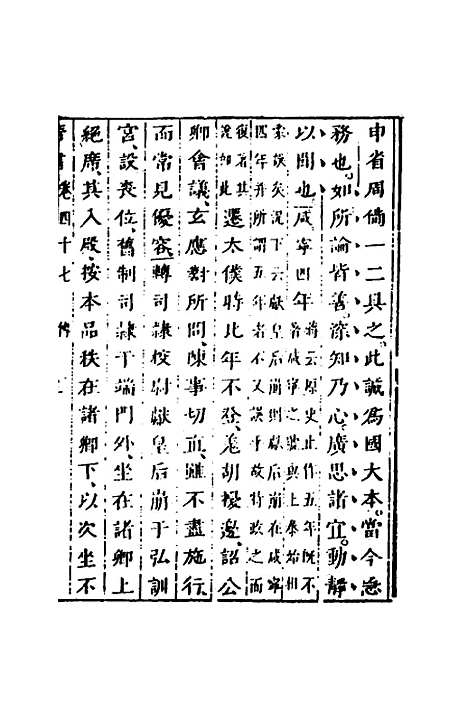 申省周備一二具之此誠爲國大本當今急
務也如所論皆善深知乃心廣思諸宜動靜
以聞也咸寧四年
蔣云原史止作五年既不
着咸寧之號與上泰始相
紊誤矣況下云獻皇后崩則獻后崩在咸寧
四年并所謂五年者不又誤乎故特改之而
復著其
說如此
遷太僕時比年不登羌胡擾邊詔公
卿會議玄應對所問陳事切直雖不盡施行
而常見優容轉司隸校尉獻皇后崩于弘訓
宮設喪位舊制司隸于端門外坐在諸卿上
絕席其入殿按本品秩在諸卿下以次坐不
晉書卷四十七 傳